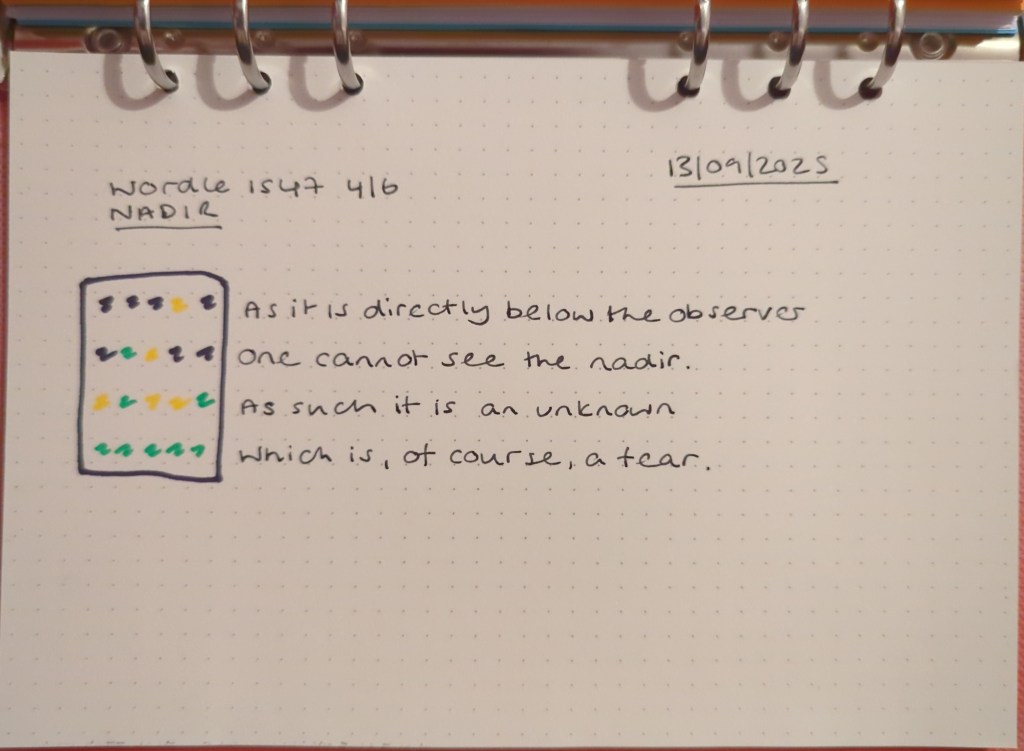 Wordle 1547 4/6
13/09/2025
NADIR
As it is directly below the observer
One cannot see the nadir.
As such it is an unknown
Which is, of course, a fear.